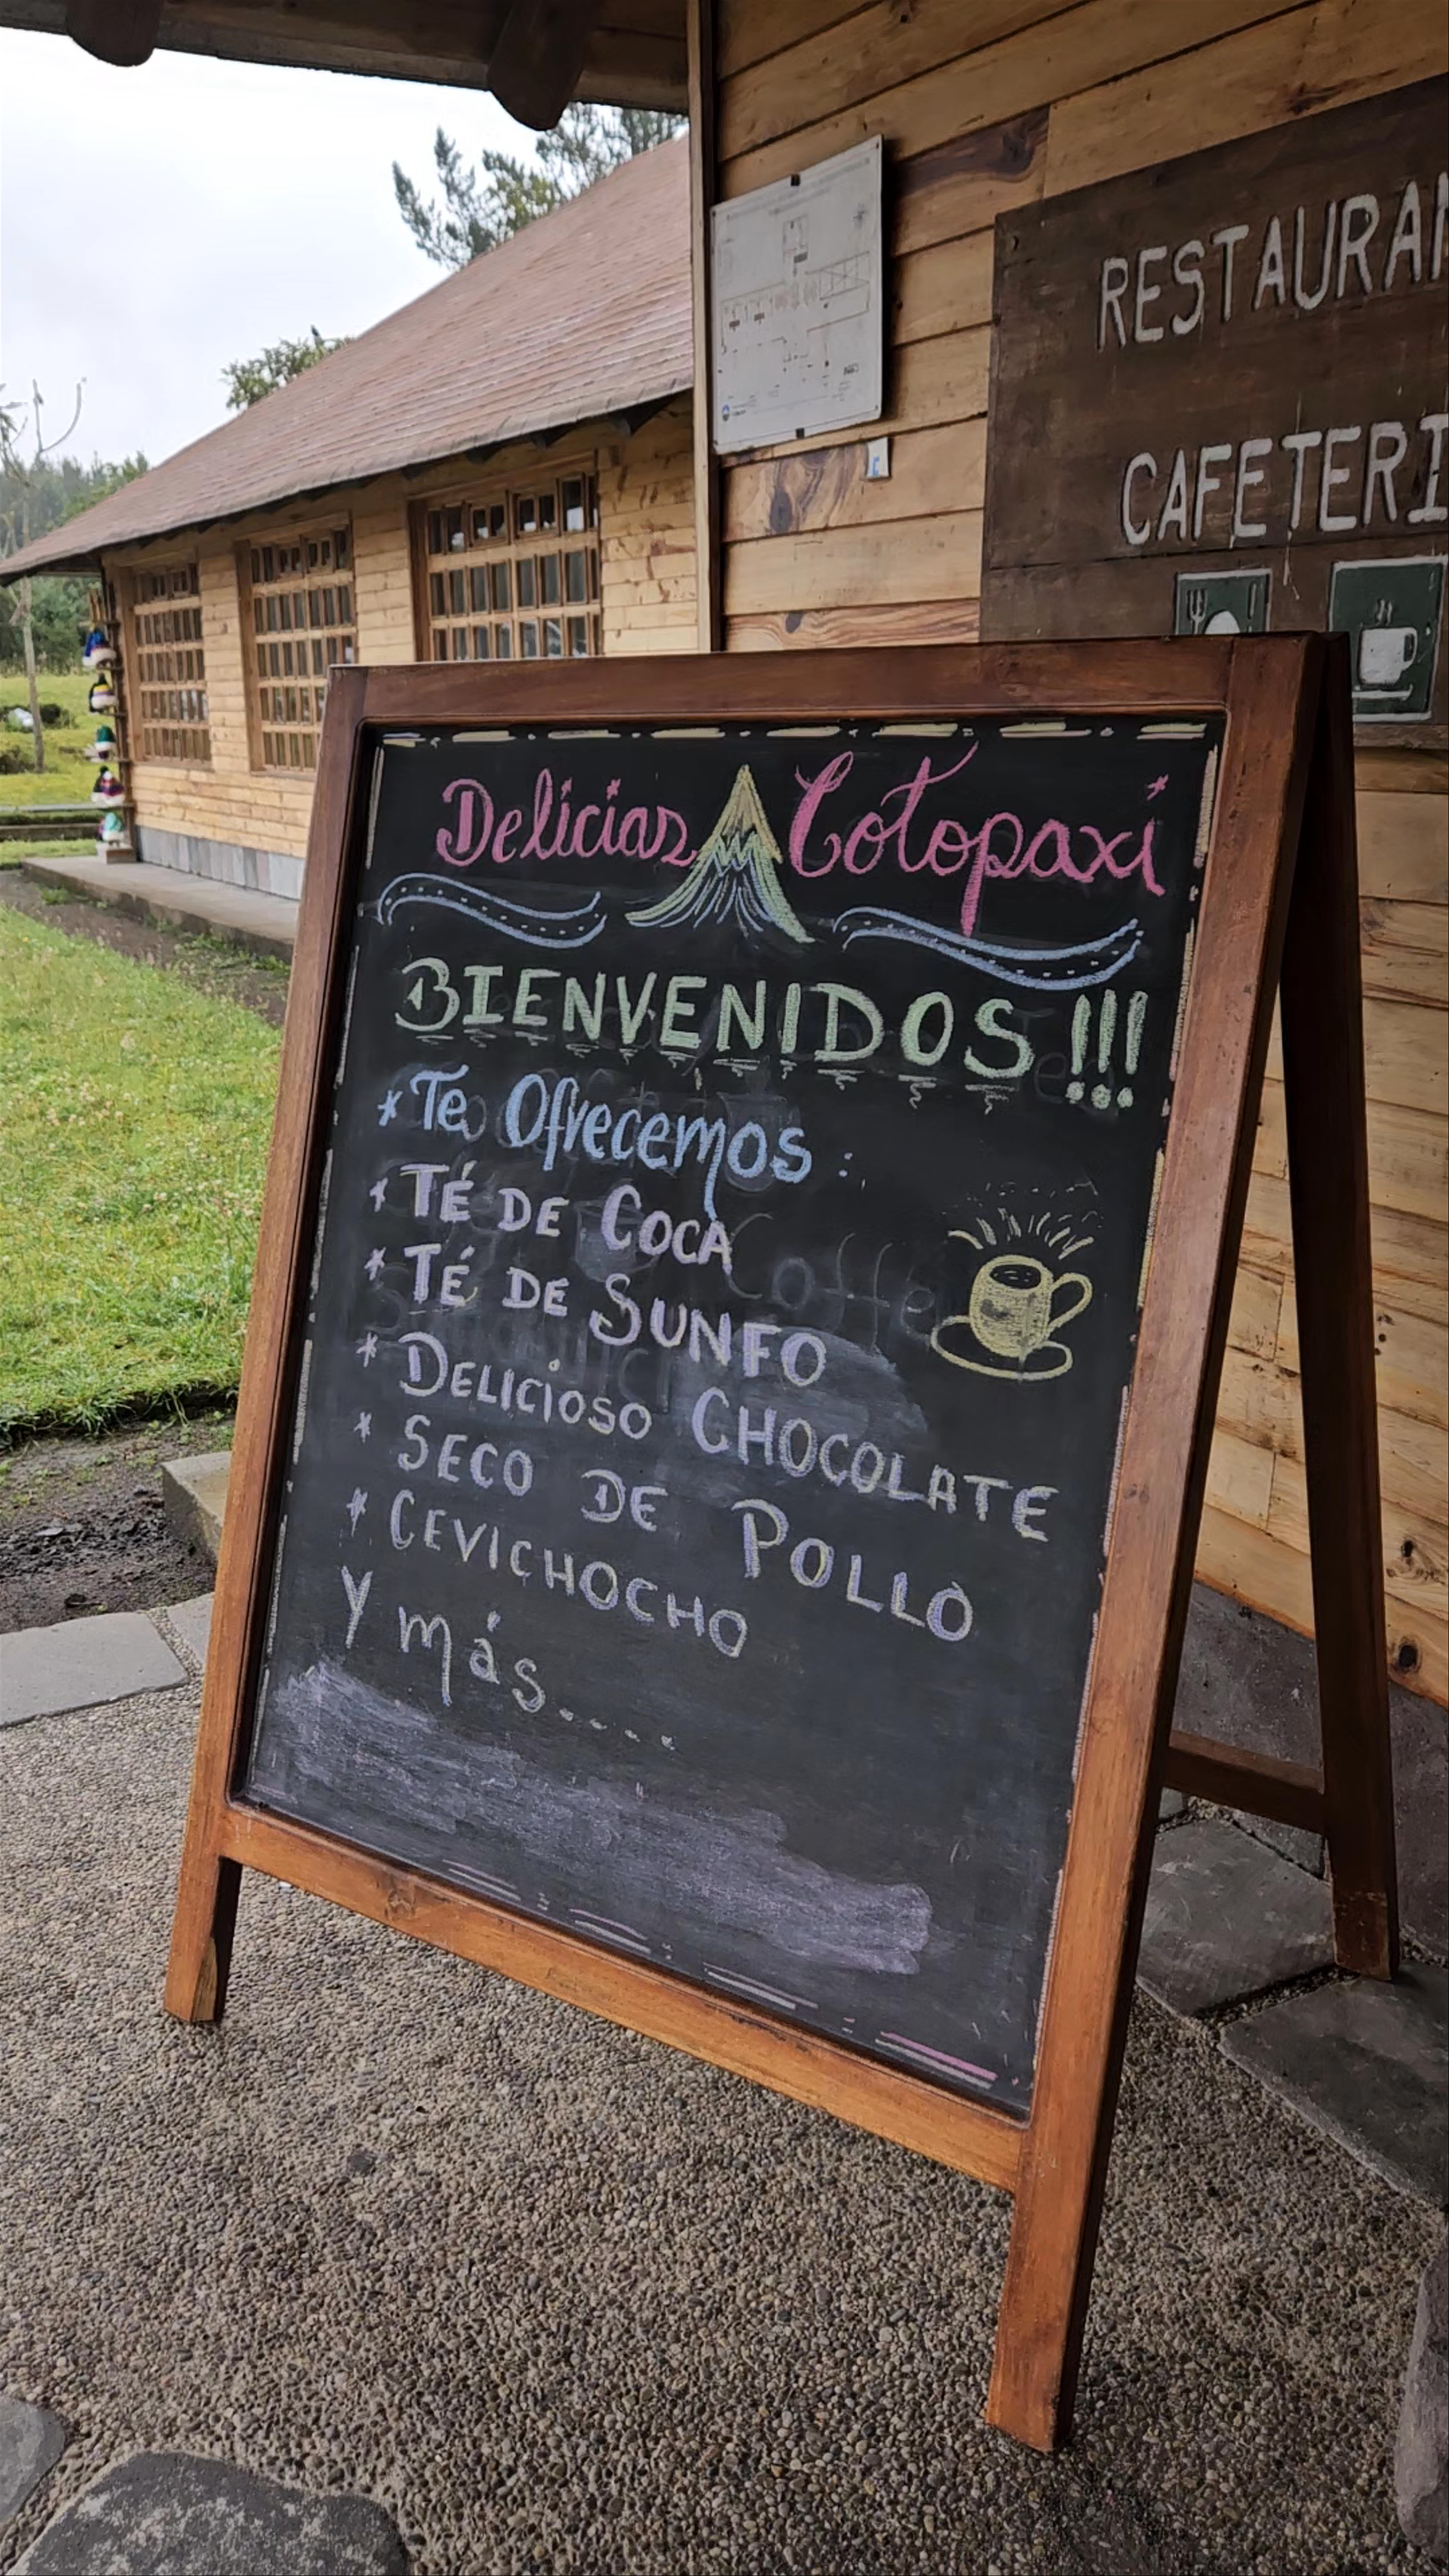 RESTAURAN
CAFETERI
Delicias Cotopaxi
BIENVENIDOS !!!
* Te Ofrecemos :
* TÉ DE COCA
* TÉ DE SUNFO
* DELICIOSO CHOCOLATE
* SECO DE POLLO
* CEVICHOCHO
Y más.....